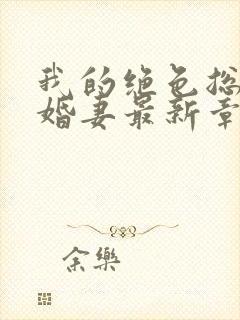 我的绝色总
婚妻最新章
余樂